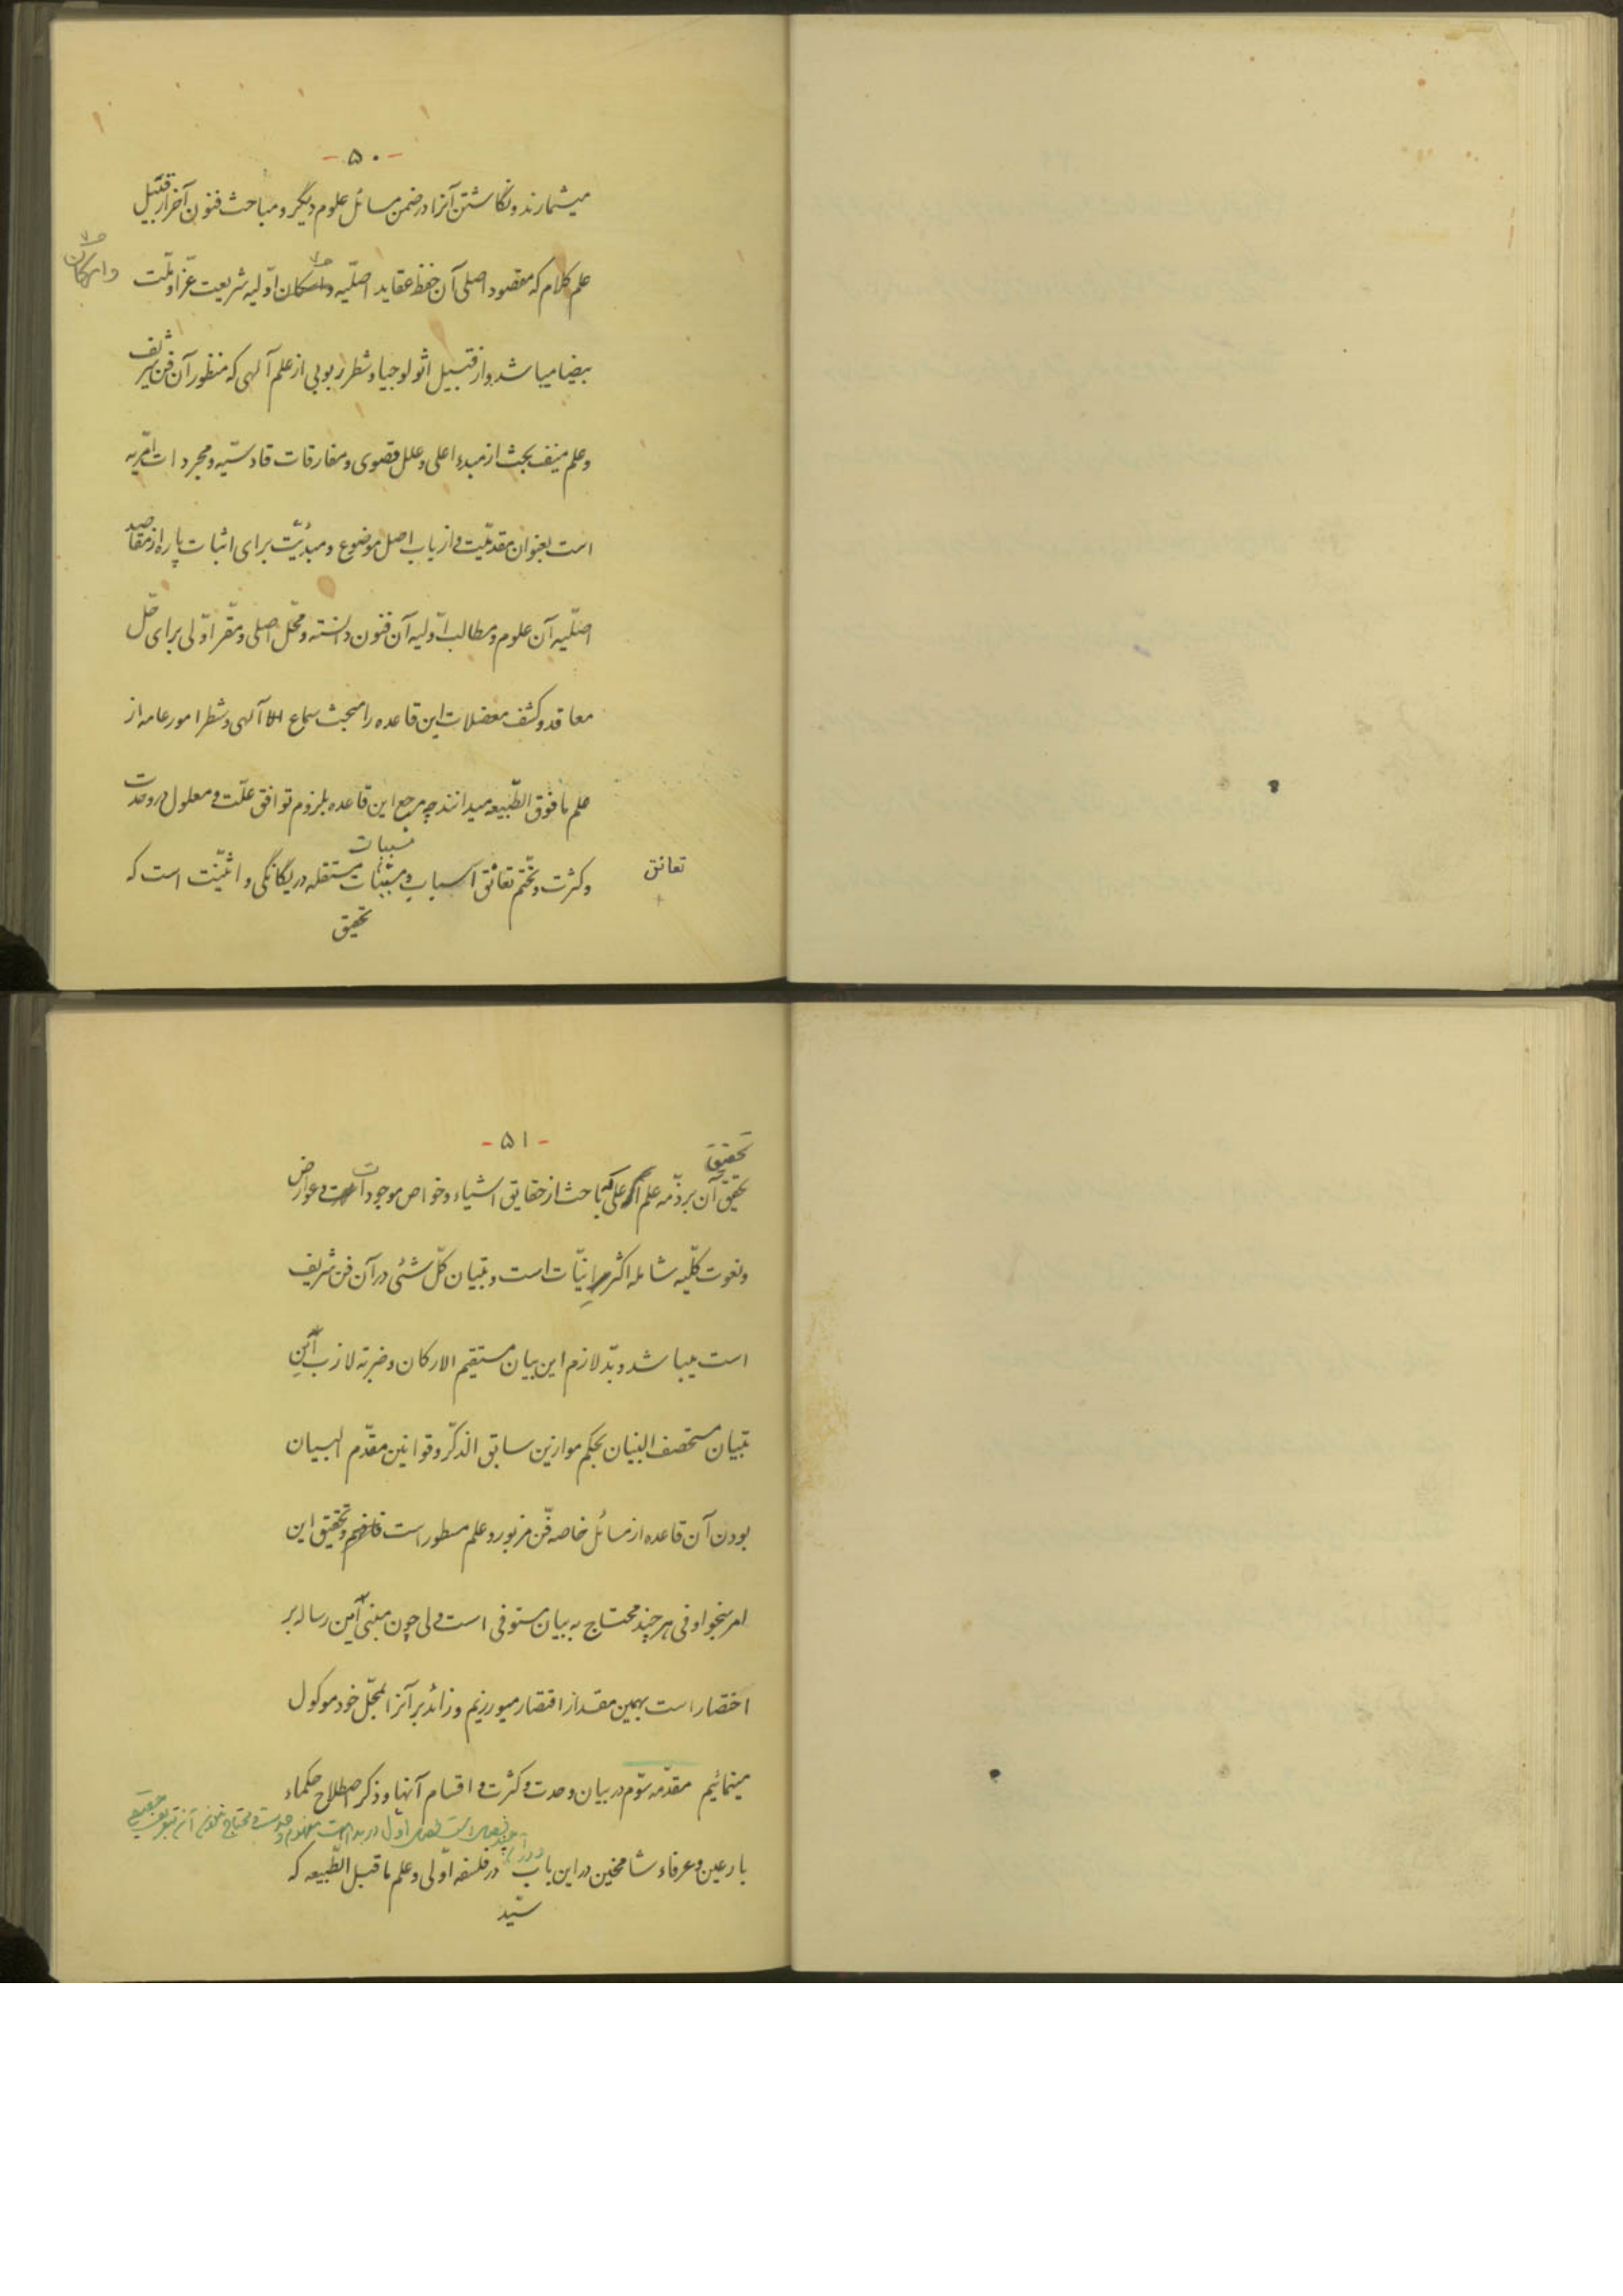 - ۵۰ -
میشمارند و نگاشتن آنرا در ضمن مسائل علوم دیگر و مباحث فنون آخر از قبیل
علم کلام که مقصود اصلی آن حفظ عقاید اصلّیه و ارکان اوّلیه شریعت غرّا و ملّت
وارکان
بیضا میباشد و از قبیل اثولوجیا و شطر ربوبی از علم آلهی که منظور آن فن شریف
و علم منیف بحث از مبدء اعلی و علل قصوی و مفارقات قادسیّه و مجردات امّریه
است بعنوان مقدمّیت و از باب اصل موضوع و مبدئیّت برای اثبات پاره از مقاصد
اصلّیه آن علوم و مطالب اوّلیه آن فنون دانسته و محّل اصلی و مقّر اوّلی برای حّل
معاقد و کشف معضلات این قاعده را مبحث سماع آلهی و شطر امور عامه از
علم مافوق الطّبیعه میدانند چه مرجع این قاعده بلزوم توافق علّت و معلول در وحدت
مسببات
و کثرت و تختّم تعانق اسباب و مسببّات مستقله در یگانگی و اثنّیت است که
تعانق
تحقیق
- ۵۱ -
تحقیق
تحقیق آن بر ذمّه علم اعلی که باحث از حقایق اشیاء و خواص موجودات و عوارض
و نعوت کلّیه شامله اکثر انیّات است و تبیان کلّ شئی در آن فن شریف
است میباشد و بّد لازم این بیان مستقیم الارکان و ضربة لازب این
تبیان مستحصف البنیان بحکم موازین سابق الذکّر و قوانین مقدّم البیان
بودن آن قاعده از مسائل خاصه فّن مزبور و علم مسطور است فافهم و تحقیق این
امر بنحو اوفی هر چند محتاج به بیان مستوفی است ولی چون مبنی این رساله بر
اختصار است بهمین مقدار اقتصار میورزیم و زائد بر آنرا بمحّل خود موکول
مینمائیم مقدّمه سوّم در بیان وحدت و کثرت و اقسام آنها و ذکر اصطلاح حکماء
اول در بداهت مفهوم وحدت
بارعین و عرفاء شامخین در این باب در فلسفه اوّلی و علم ماقبل الطّبیعه که
سیّد